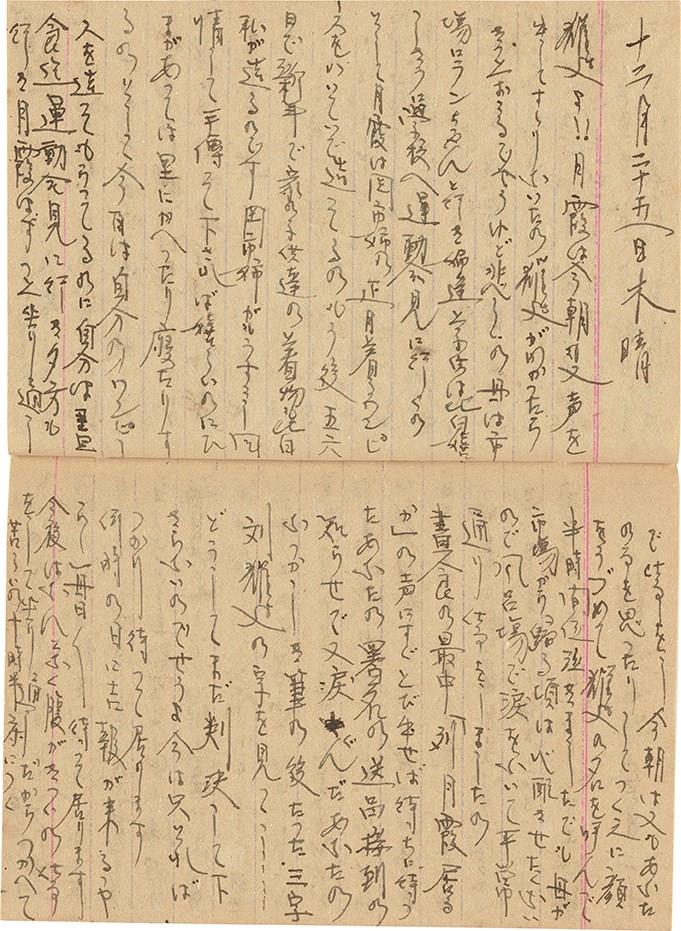 十二月二十五日木晴
雅文よ!!月霞は今朝も又声を
出してすゝりないたの雅文がわかつたら
きつとおこるでせうけど悲しいの母は市
場にランちやんと行き
学校へ運動会見に行くの
そして月霞は岡市姉の正月着る
スをいそいで造つてるのもう後五六
日で新年で家の子供達の着物も皆
私が造るのです岡市姉がもうすこし同
情して手傳つて下されば嬉しいのにひ
まがあつては里にかへつたり寝たりす
るのそして今日は自分の
人を造つてもらつてるのに自分は里
運動会見に行き夕方も
行き月霞はずつと坐り通し
で仕事をし今朝は又もあなた
の事を思つたりしてつくえに顔
をうづめて雅文の名を呼んで
半時間位泣きましたでも母が
市場から歸る頃は心配させたくない
ので風呂場で涙をふいて平常
通り仕事をしましたの
晝食の最中「劉月霞居る
か」の声にすぐとび出せば待ちに待つ
たあなたの署名の送品様到の
知らせで又涙ぐんだあなたの
なつかしき筆の後たつた三字
劉雅文の字を見つ
どうしてまだ判決して下
さらないのでせうよ今は只それば
つかり待つて居ります
何時の日に吉報が来るや
らし毎日〱待つて居ります
今夜はなんとなく腹がきついの仕事
をして坐り通しだからつかへて
苦しいの十時半床につく